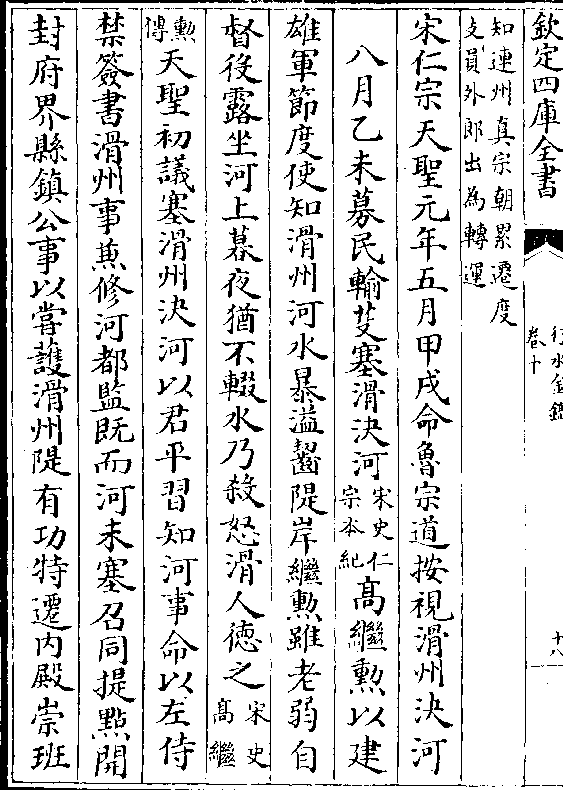 欽定四庫全書
行水金鑑
卷十
十八
知連州真宗朝累遷度
支員外郎出為轉運
宋仁宗天聖元年五月甲戌命魯宗道按視滑州決河
八月乙未募民輸芟塞滑決河宋史仁宗本紀高繼勲以建
雄軍節度使知滑州河水暴溢齧隄岸繼勲雖老弱自
督役露坐河上暮夜猶不輟水乃殺怒滑人德之宋史高繼
勲傳天聖初議塞滑州決河以君平習知河事命以左侍
禁簽書滑州事兼修河都監既而河未塞召同提點開
封府界縣鎮公事以嘗護滑州隄有功特遷内殿崇班